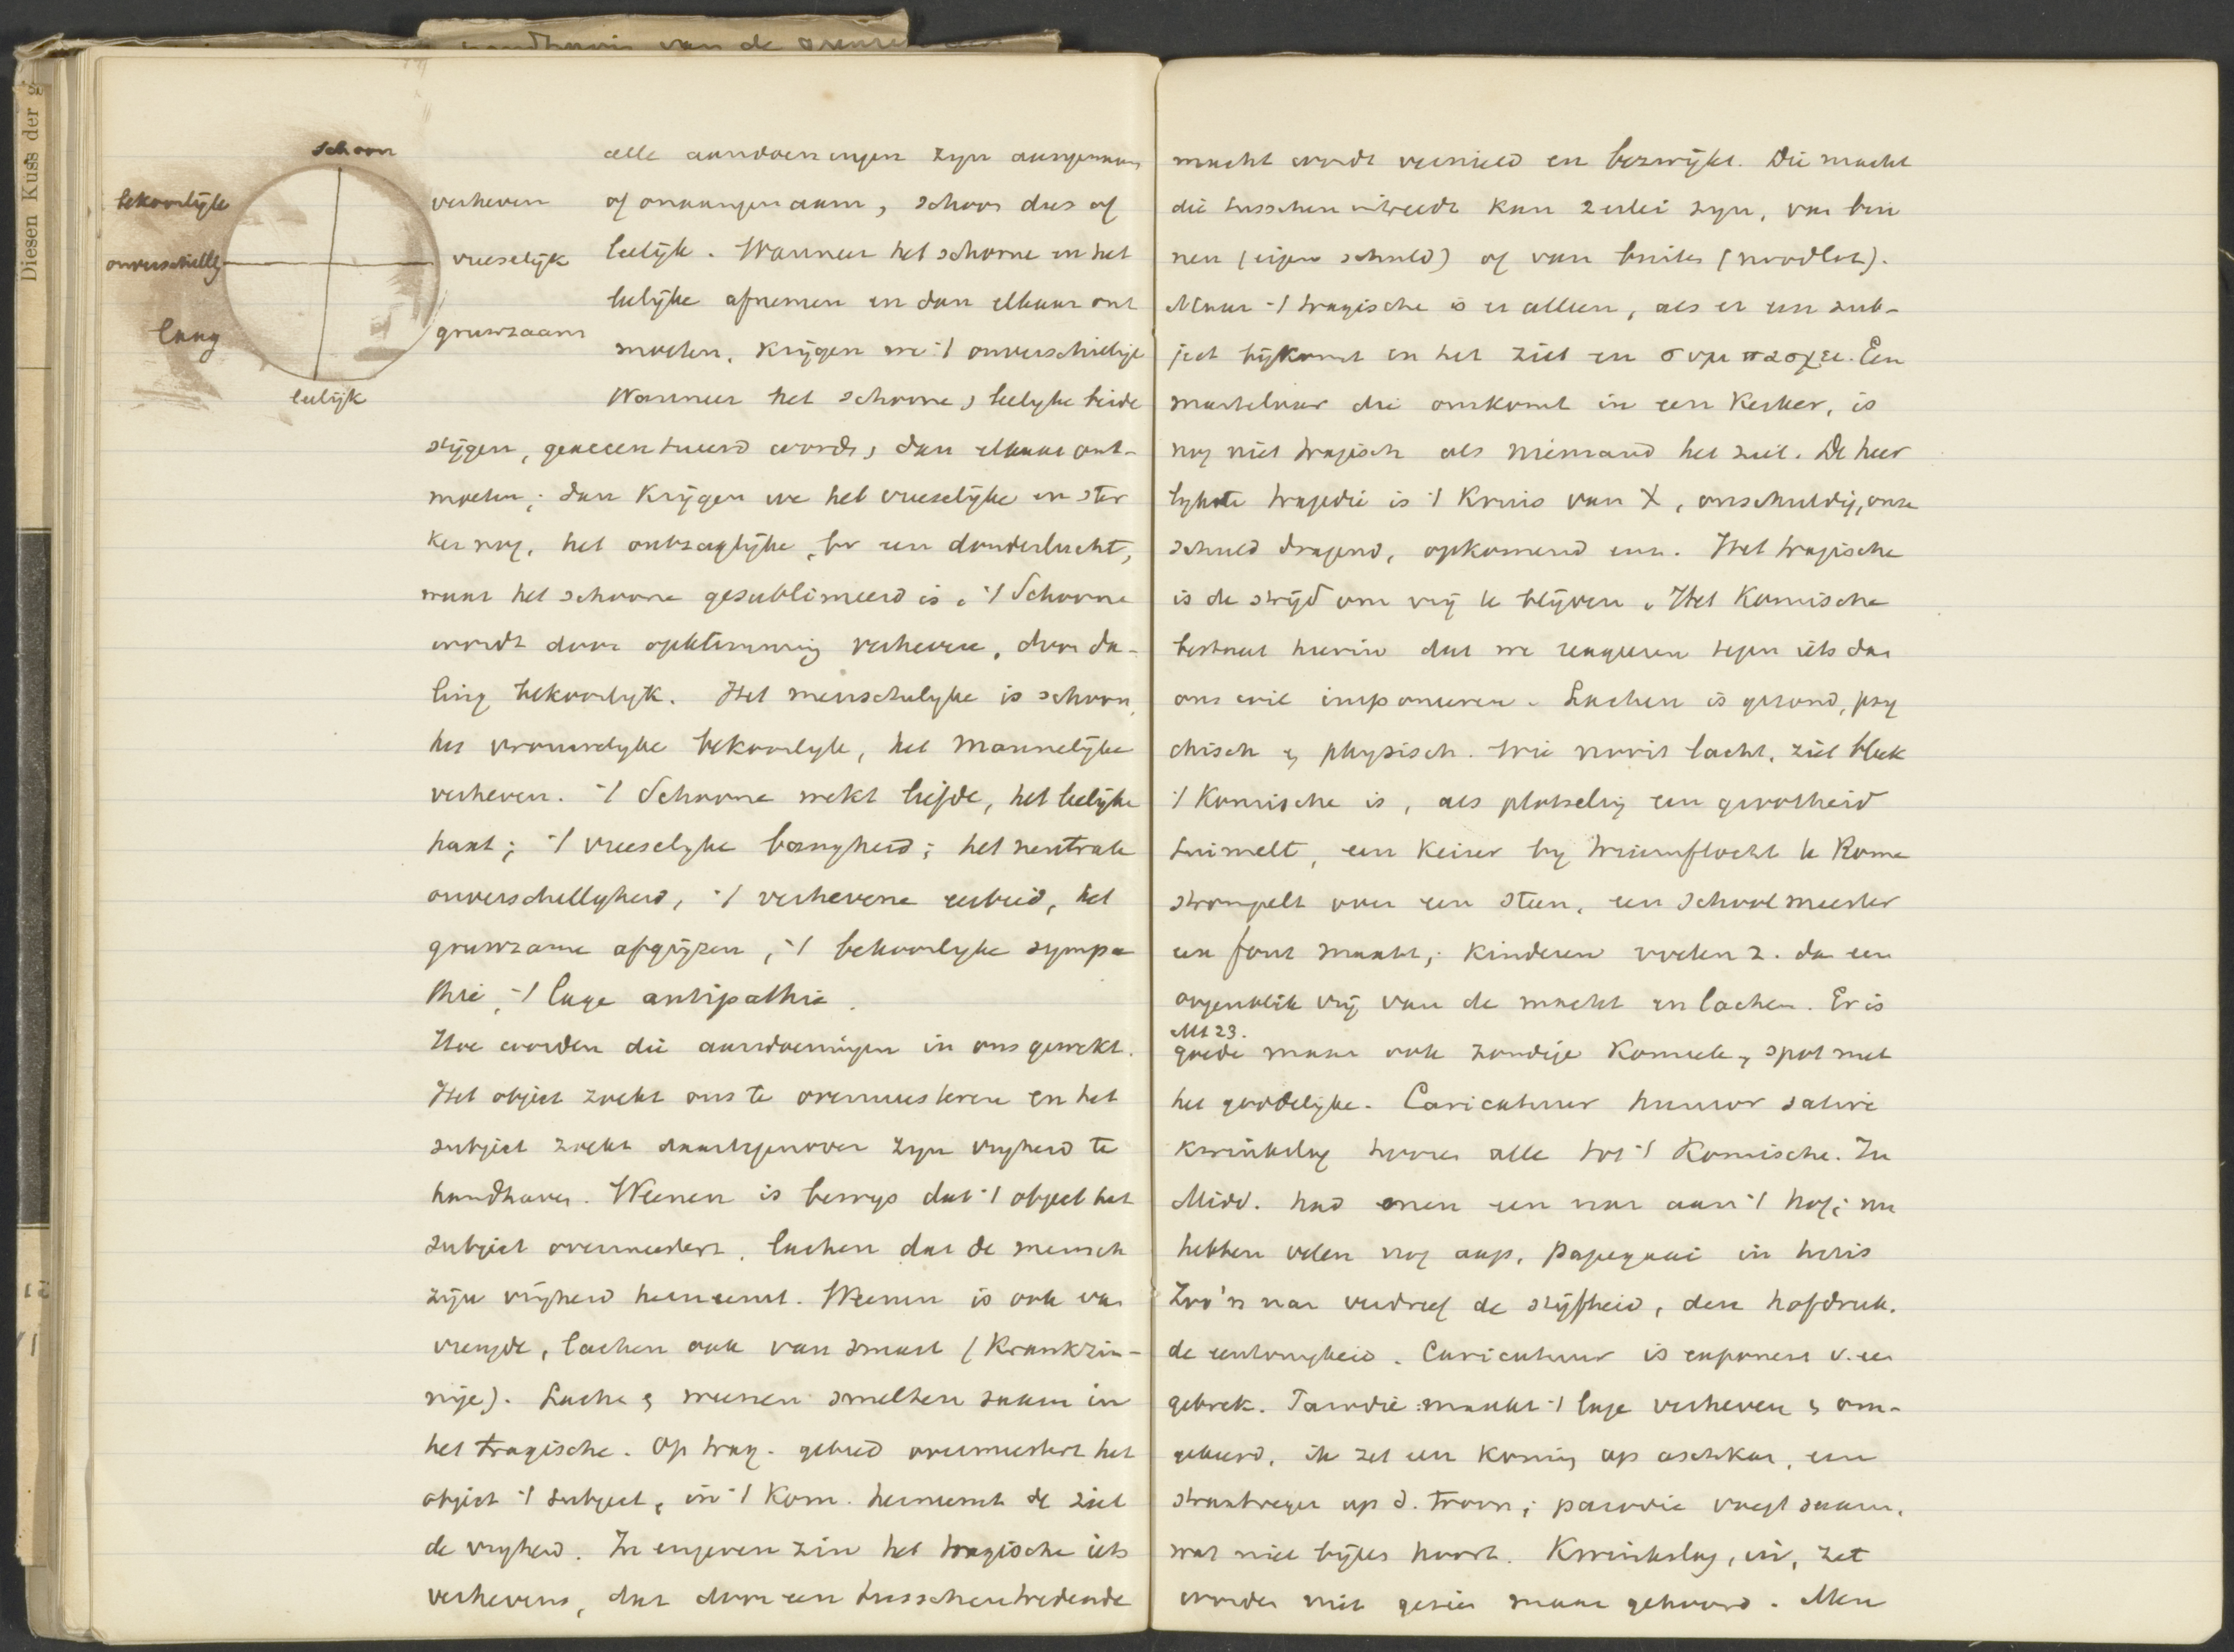 Diesen Kuss der
schoon
bekoorlijk
verheven
onverschillig
vreeselijk
laag
gruwzaam
leelijk
alle aandoeningen zyn aangenaam
of onaangenaam, schoon dus of
leelijk. Wanneer het schoone en het
leelijke afnemen en dan elkaar ont
moeten, krijgen we 't onverschillige
Wanneer het schoone, leelyke beide
stijgen, geaccentueerd wordt, dan elkaar ont-
moeten; dan krijgen we het vreeselijke en ster
ker nog, het ontzaglijke, bv een donderlucht,
waar het schoone gesublimeerd is. 't Schoone
wordt door opklimming verheven, door da-
ling bekoorlyk. Het menschelyke is schoon,
het vrouwelyke bekoorlyk, het mannelijke
verheven. 't Schoone wekt liefde, het leelijke
haat; 't vreeselyke bangheid; het neutrale
onverschillygheid, 't verhevene eerbied, het
gruwzame afgrijzen, 't bekoorlyke sympa
thie, 't lage antipathie.
Hoe worden die aandoeningen in ons gewekt.
Het object zoekt ons te overmeesteren en het
subject zoekt daartegenover zyn vryheid te
handhaven. Weenen is bewys dat 't object het
subject overmeestert, lachen dat de mensch
zijn vrijheid herneemt. Weenen is ook van
vreugde, lachen ook van smart (krankzin-
nige). Lachen & weenen smelten saam in
het tragische. Op trag. gebied overmeestert het
object 't subject, in 't kom. herneemt de ziel
de vryheid. In engeren zin het tragische iets
verhevens, dat door een tusschentredende
macht wordt vernield en bezwijkt. Die macht
die tusschen intreedt kan 2erlei zyn, van bin
nen (eigen schuld) of van buiten (noodlot).
Maar 't tragische is er alleen, als er een sub-
ject bijkomt en het ziet en συμπασχει. Een
martelaar die omkomt in een kerker, is
nog niet tragisch als niemand het ziet. De heer
lykste tragedie is 't Kruis van X, onschuldig, onze
schuld dragend, opkomend enz. Het tragische
is de strijd om vrij te blijven. Het Komische
bestaat hierin dat we reageren tegen iets dat
ons wil imponeeren. Lachen is gezond, psy
chisch & physisch. Wie nooit lacht, ziet bleek
't Komische is, als plotseling een grootheid
tuimelt, een keizer by triumftocht te Rome
strompelt over een steen, een schoolmeester
een fout maakt; kinderen voelen z. dan een
oogenblik vrij van de macht en lachen. Er is
Mt 23.
goede maar ook zondige komiek, spot met
het goddelijke. Caricatuur humor satire
kwinkslag hooren alle tot 't Komische. In
Midd. had men een nar aan 't hof; nu
hebben velen nog aap, papegaai in huis
Zoo'n nar verdreef de stijfheid, den hofdruk,
de eentonigheid. Caricatuur is exponent v. een
gebrek. Parodie maakt 't lage verheven & om-
gekeerd, ik zet een koning op aschkar, een
straatveger op d. troon; parodie voegt saam,
wat niet bijeen hoort. Kwinkslag, ui, zet
worden niet gezien maar gehoord. Men